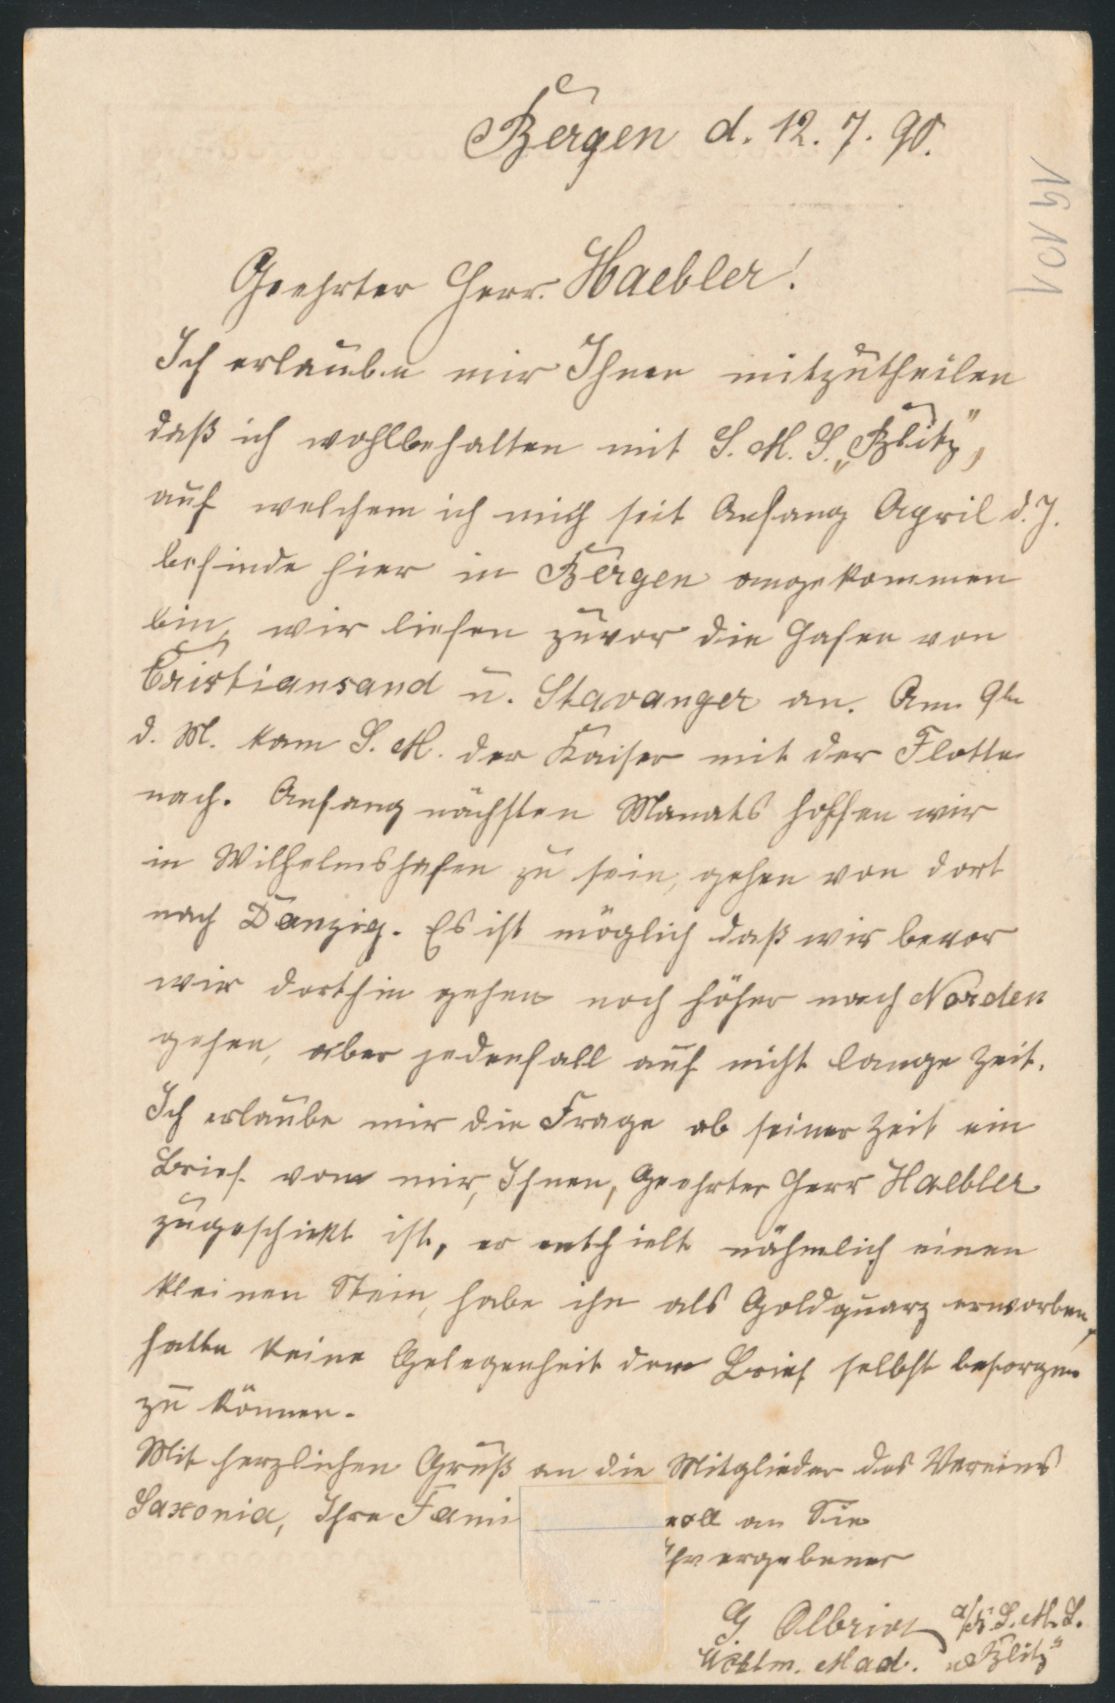 Bergen d. 12. 7. 90.
Geehrter Herr Haebler!
Ich erlaube mir Ihnen mitzutheilen
daß ich wohlbehalten mit S. M. S. „Blitz",
auf welchem ich mich seit Anfang April d. J.
befinde hier in Bergen angekommen
bin, wir liefen zuvor die Hafen von
Cristiansand u. Stavanger an. Am 9ten
d. M. kam S. M. der Kaiser mit der Flotte
nach. Anfang nächsten Monats hoffen wir
in Wilhelmshafen zu sein, gehen von dort
nach Danzig. Es ist möglich daß wir bevor
wir dorthin gehen noch höher nach Norden
gehen, aber jedenfall auf nicht lange Zeit.
Ich erlaube mir die Frage ob seiner Zeit ein
Brief von mir, Ihnen, Geehrter Herr Haebler
zugeschickt ist, er enthielt nähmlich einen
kleinen Stein, habe ihn als Goldquarz erworben,
hatte keine Gelegenheit den Brief selbst besorgen
zu können.
Mit herzlichen Gruß an die Mitglieder des Vereins
Saxonia, Ihre Fami an Sie
ergebener
G. a/B. S. M. S.
„Blitz"
19101